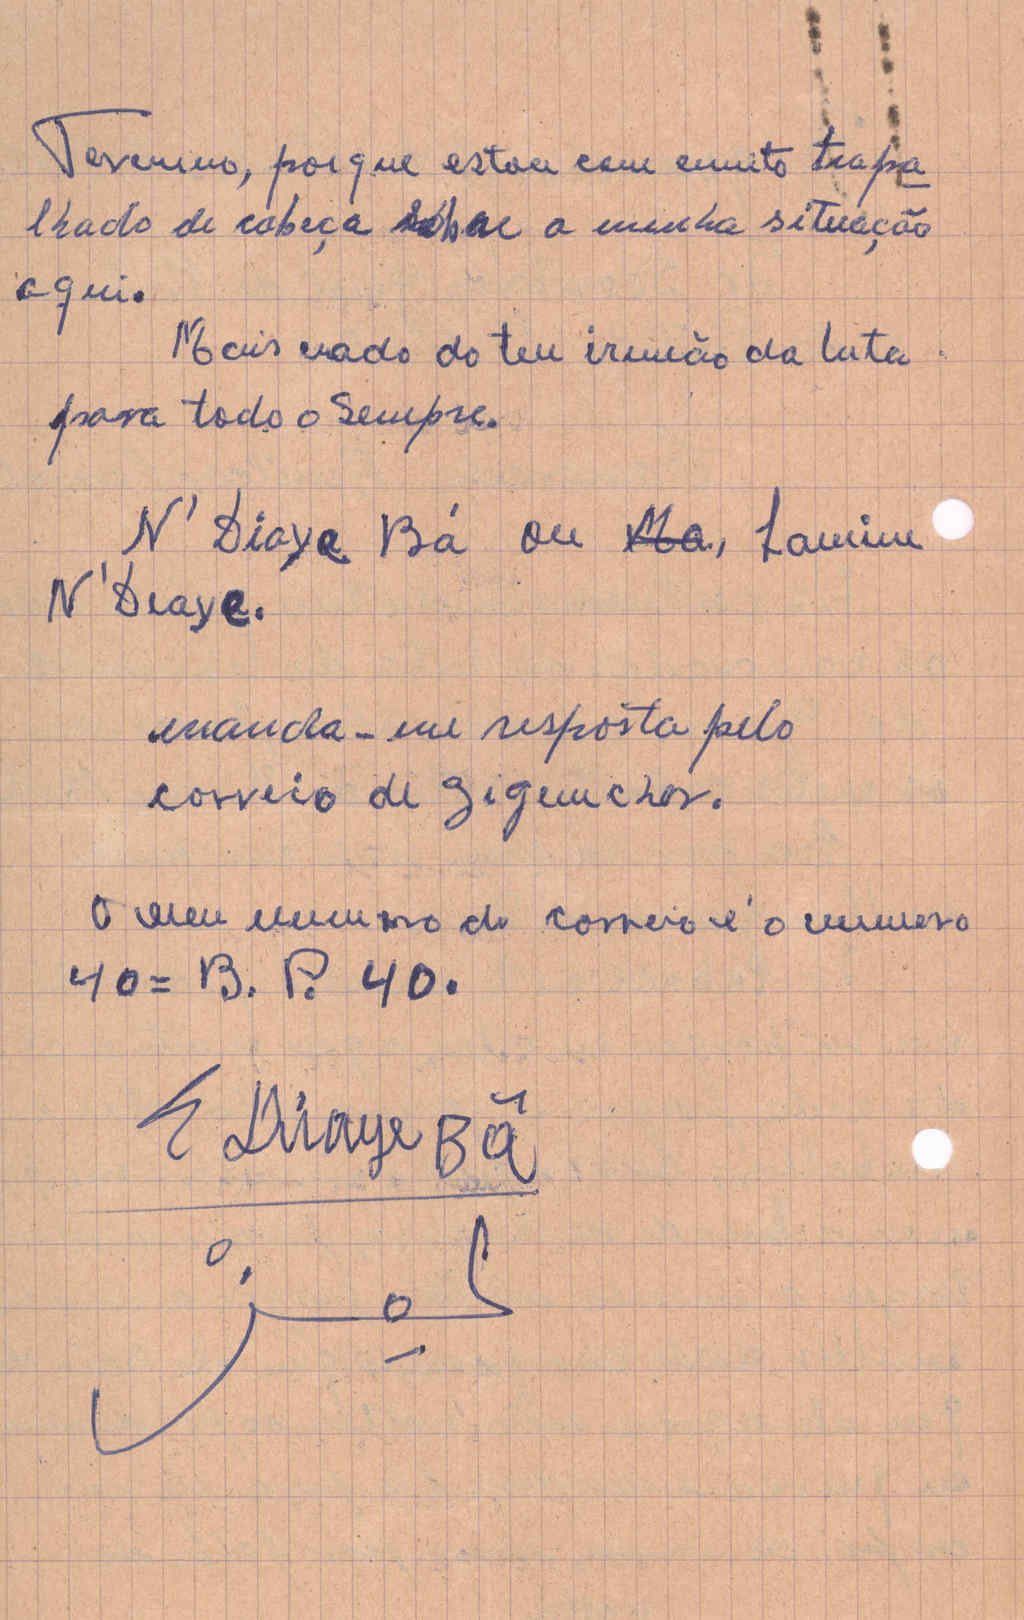 Termino, porque estou com muito trapa
lhado de cabeça sobre a minha situação
aqui.
Mais nado do teu irmão da luta
para todo o Sempre.
N'Diaye Bá ou Ma, Lamine
N'Diaye.
manda-me resposta pelo
correio de Zigumchor.
O meu numero do correio é o numero
40= B. P. 40.
N Diaye Bã
لمين